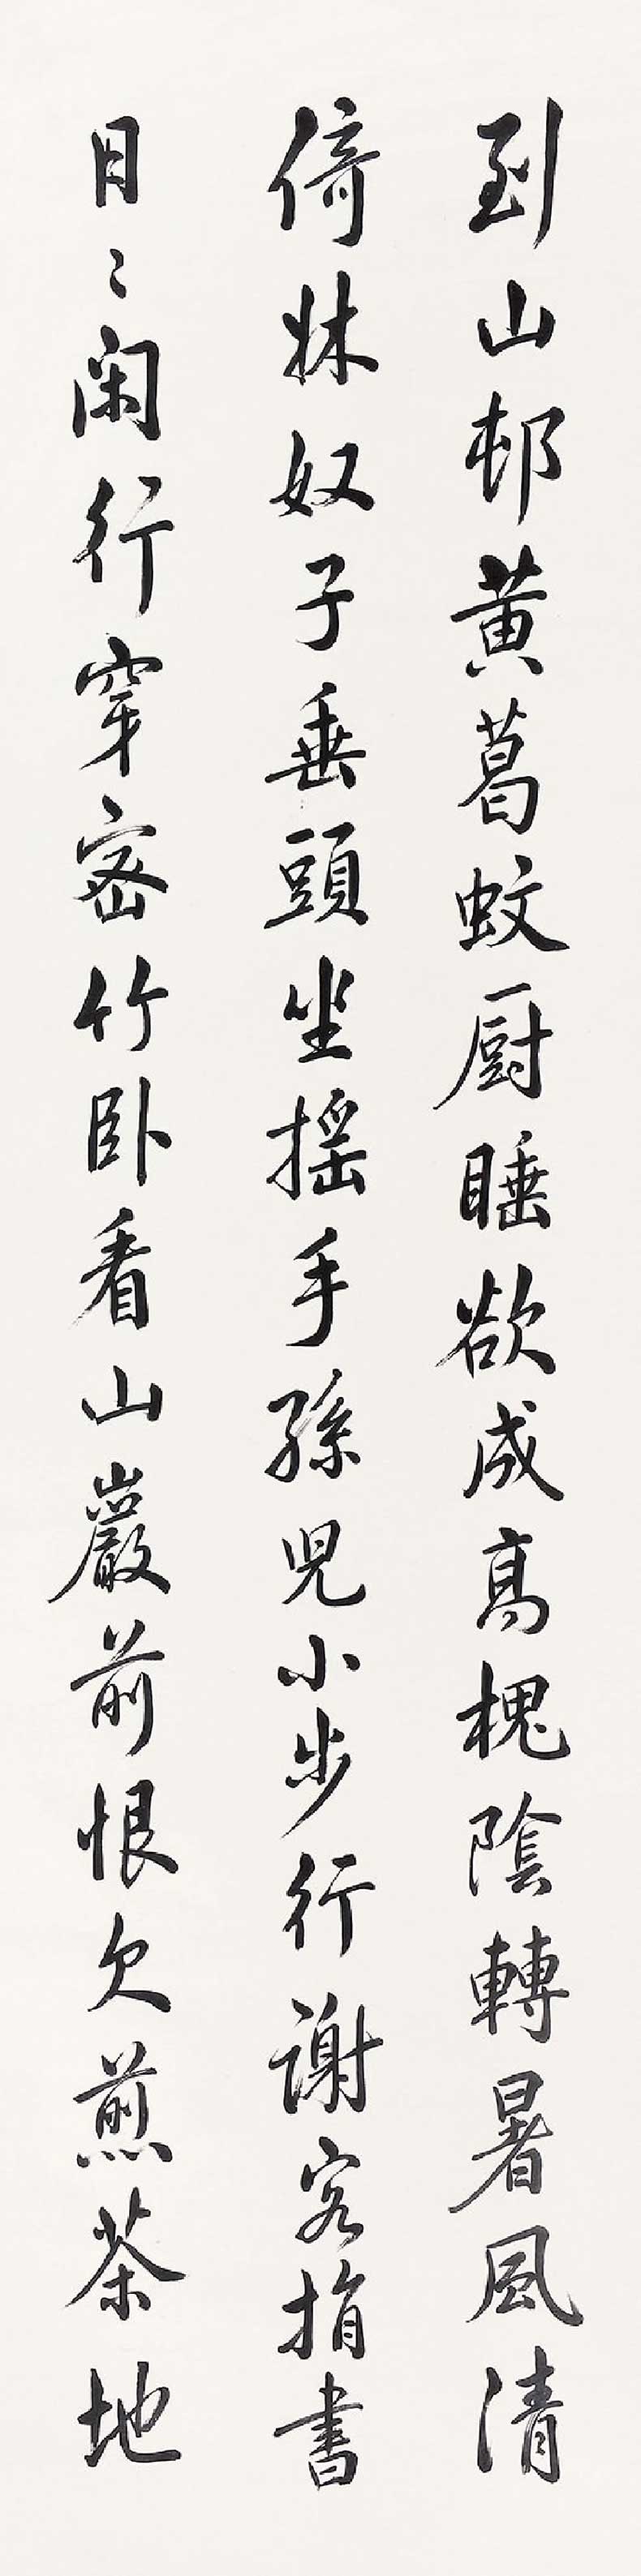 到山邨黄葛蚊厨睡欲成高槐陰轉暑風清
倚牀奴子垂頭坐摇手孫児小步行謝客指書
日〻閑行穿密竹卧看山巖前恨欠煎茶地